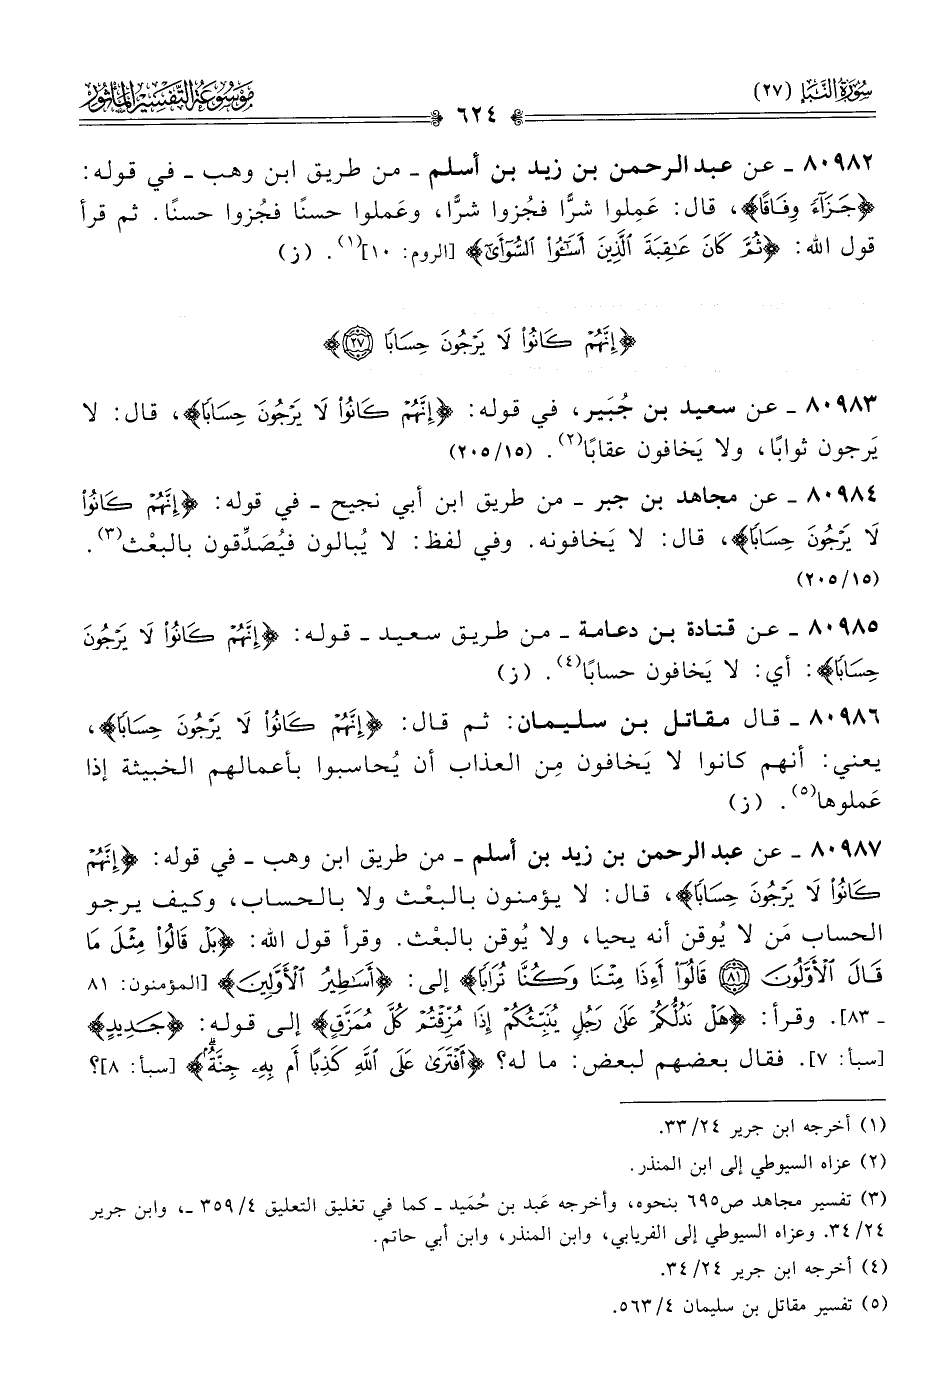 سُورَةُ النَّبَإِ (٢٧)
مَوْسُوعَةُ التَّفْسِيرِ المَأْثُورِ
٦٢٤
٨٠٩٨٢ ـ عن عبد الرحمن بن زيد بن أسلم ـ من طريق ابن وهب ـ في قوله:
﴿جَزَآءً وِفَاقًا﴾، قال: عَمِلوا شرًّا فجُزوا شرًّا، وعَملوا حسنًا فجُزوا حسنًا. ثم قرأ
قول الله: ﴿ثُمَّ كَانَ عَـٰقِبَةَ ٱلَّذِينَ أَسَـٰٓـُٔوا۟ ٱلسُّوٓأَىٰٓ﴾ [الروم: ١٠](١). (ز)
﴿إِنَّهُمْ كَانُوا۟ لَا يَرْجُونَ حِسَابًا ٢٧﴾
٨٠٩٨٣ ـ عن سعيد بن جُبَير، في قوله: ﴿إِنَّهُمْ كَانُوا۟ لَا يَرْجُونَ حِسَابًا﴾، قال: لا
يَرجون ثوابًا، ولا يَخافون عقابًا(٢). (١٥/ ٢٠٥)
٨٠٩٨٤ ـ عن مجاهد بن جبر ـ من طريق ابن أبي نجيح ـ في قوله: ﴿إِنَّهُمْ كَانُوا۟
لَا يَرْجُونَ حِسَابًا﴾، قال: لا يَخافونه. وفي لفظ: لا يُبالون فيُصَدِّقون بالبعْث(٣).
(١٥/ ٢٠٥)
٨٠٩٨٥ ـ عن قتادة بن دعامة ـ من طريق سعيد ـ قوله: ﴿إِنَّهُمْ كَانُوا۟ لَا يَرْجُونَ
حِسَابًا﴾: أي: لا يَخافون حسابًا(٤). (ز)
٨٠٩٨٦ ـ قال مقاتل بن سليمان: ثم قال: ﴿إِنَّهُمْ كَانُوا۟ لَا يَرْجُونَ حِسَابًا﴾،
يعني: أنهم كانوا لا يَخافون مِن العذاب أن يُحاسبوا بأعمالهم الخبيثة إذا
عَملوها(٥). (ز)
٨٠٩٨٧ ـ عن عبد الرحمن بن زيد بن أسلم ـ من طريق ابن وهب ـ في قوله: ﴿إِنَّهُمْ
كَانُوا۟ لَا يَرْجُونَ حِسَابًا﴾، قال: لا يؤمنون بالبعْث ولا بالحساب، وكيف يرجو
الحساب مَن لا يُوقن أنه يحيا، ولا يُوقن بالبعْث. وقرأ قول الله: ﴿بَلْ قَالُوا۟ مِثْلَ مَا
قَالَ ٱلْأَوَّلُونَ ٨١ قَالُوٓا۟ أَءِذَا مِتْنَا وَكُنَّا تُرَابًا﴾ إلى: ﴿أَسَـٰطِيرُ ٱلْأَوَّلِينَ﴾ [المؤمنون: ٨١
ـ ٨٣]. وقرأ: ﴿هَلْ نَدُلُّكُمْ عَلَىٰ رَجُلٍ يُنَبِّئُكُمْ إِذَا مُزِّقْتُمْ كُلَّ مُمَزَّقٍ﴾ إلى قوله: ﴿جَدِيدٍ﴾
[سبأ: ٧]. فقال بعضهم لبعض: ما له؟ ﴿أَفْتَرَىٰ عَلَى ٱللَّهِ كَذِبًا أَم بِهِۦ جِنَّةٌۢ﴾ [سبأ: ٨]؟
(١) أخرجه ابن جرير ٢٤/ ٣٣.
(٢) عزاه السيوطي إلى ابن المنذر.
(٣) تفسير مجاهد ص٦٩٥ بنحوه، وأخرجه عَبد بن حُمَيد ـ كما في تغليق التعليق ٤/ ٣٥٩ ـ، وابن جرير
٢٤/ ٣٤. وعزاه السيوطي إلى الفريابي، وابن المنذر، وابن أبي حاتم.
(٤) أخرجه ابن جرير ٢٤/ ٣٤.
(٥) تفسير مقاتل بن سليمان ٤/ ٥٦٣.